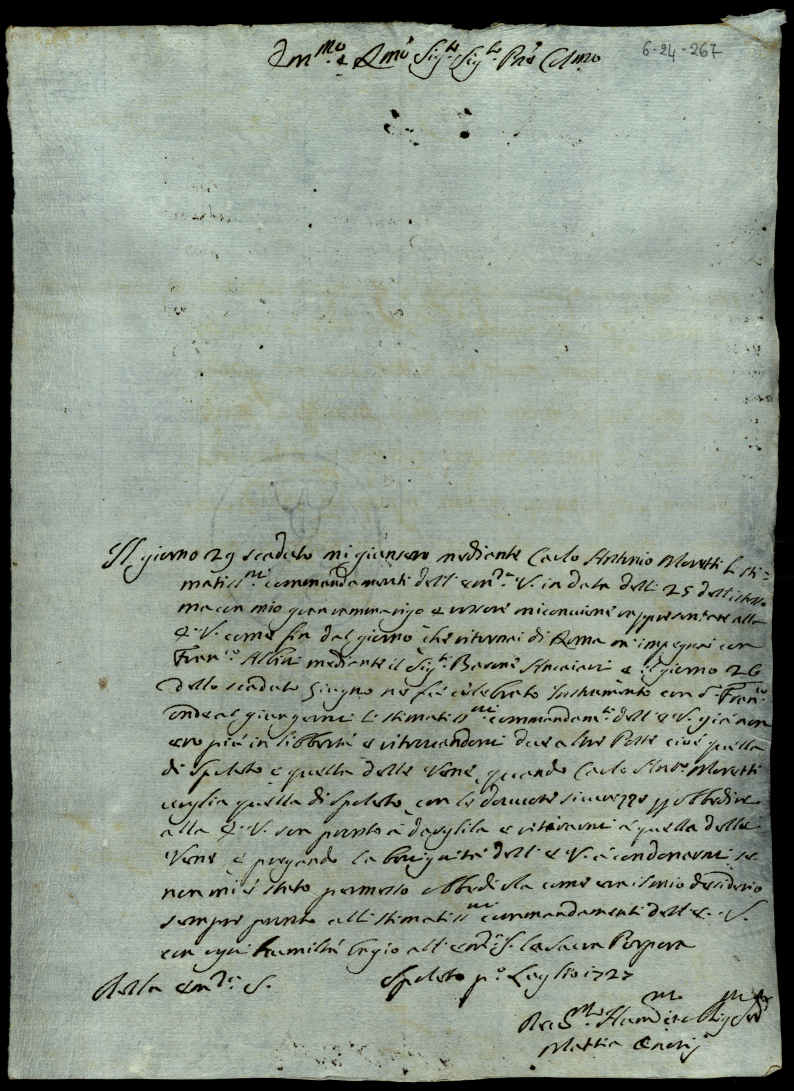 6-24-267
Em.mo e R.mo Sig.re Sig.re Pňe Colmo
Il giorno 29 scaduto mi giunsero mediante Carlo Antonio Moretti li sti=
matiss.mi commandamenti dell' Em.za V. in data delli 25 dell'istesso
ma con mio gran rammarigo e rossore mi conviene rappresentare alla
E. V. come fin dal giorno che ritornai di Roma m'impegnai con
Fran.co mediante il Sig.r Barone Ancaiani e il giorno 26
dello scaduto Giugno ne fù celebrato Instrumento con d.o Fran.co
onde al giungermi li stimatiss.mi commandam.ti dell' E. V. già non
ero più in libbertà e ritornandomi due altre Poste cioè quella
di Spoleto e quella delle Vene, quando Carlo Ant.o Moretti
voglia quella di Spoleto, con le dovute sicurezze p obbedire
alla E. V. son pronto à dargliela e ritirarmi à quella delle
Vene e pregando la benignità dell' E. V. à condonarmi se
non mi è stato permesso obbedirla come era il mio desiderio
sempre pronto alli stimatiss.mi commandamenti dell' E. V.
con ogni humiltà bagio all' Em.za S. la Sacra Porpora
Della Em.za S. Spoleto p.o Luglio 1727
Hum.
Mattia